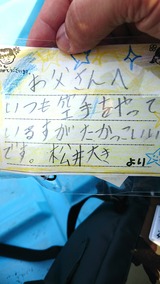 お父さんへ
いつも空手をやって
いるすがたかっこいい
です。松井大き
より